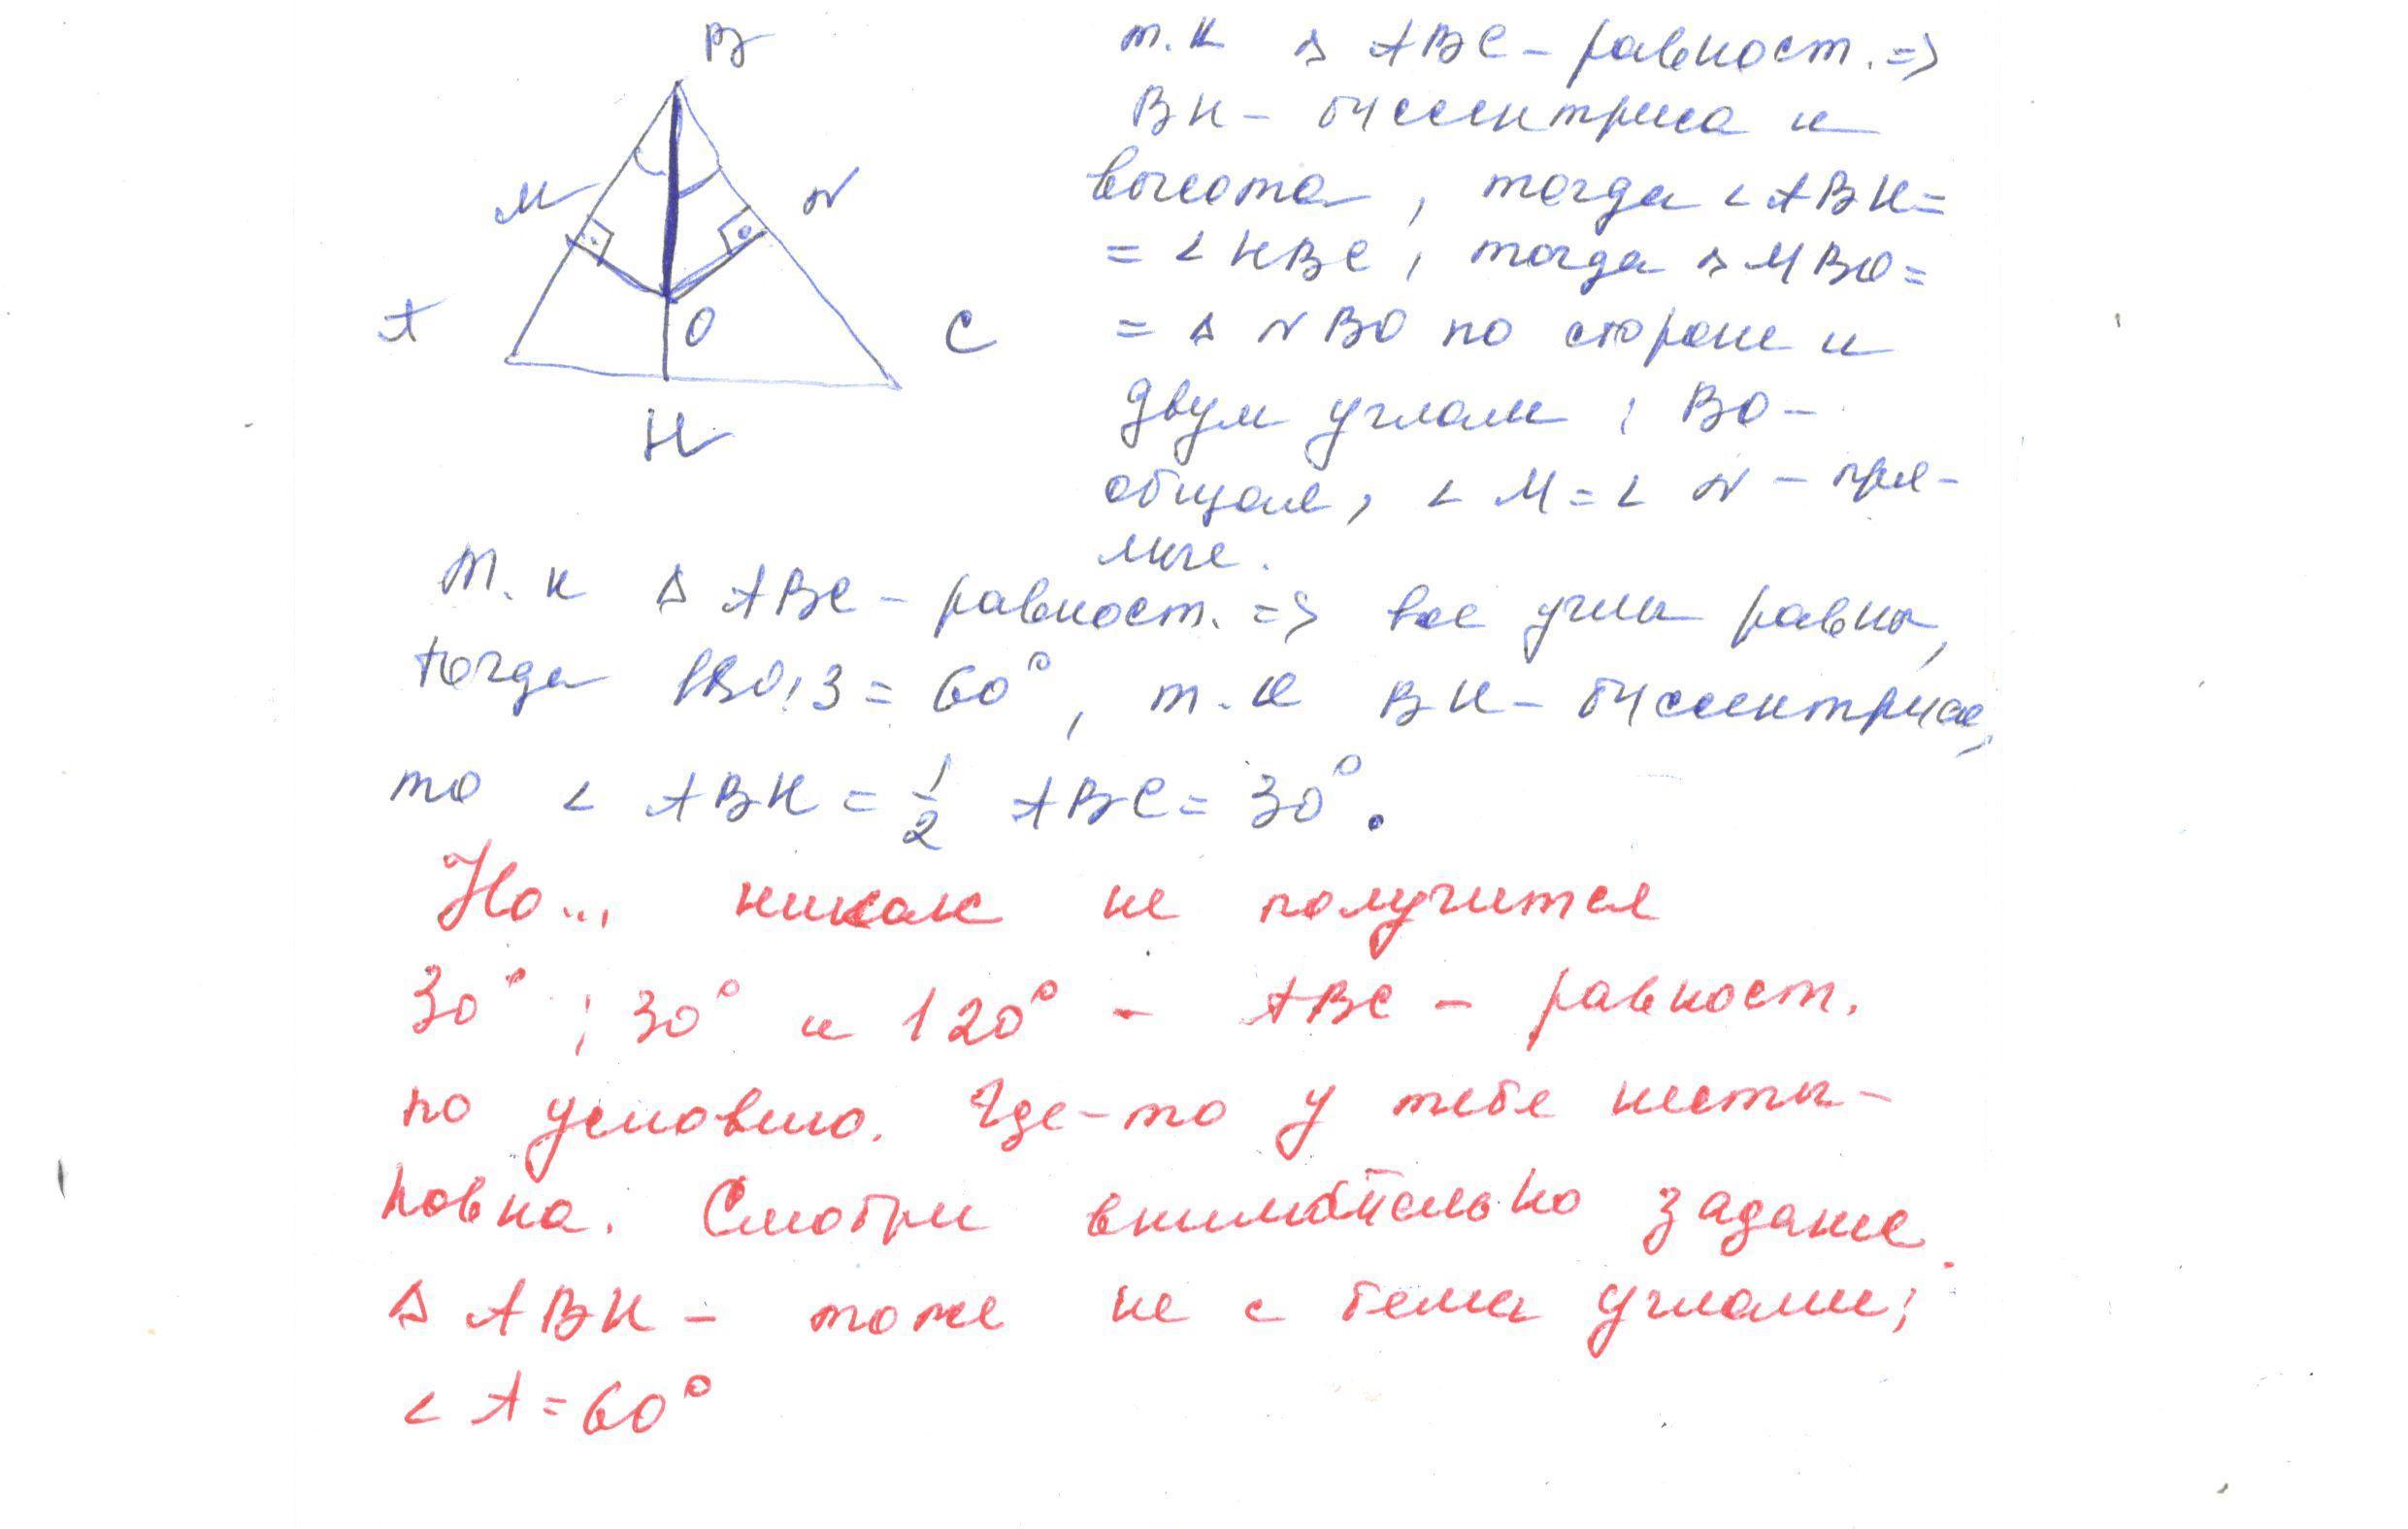 B
M
N
A
O
C
H
т.к △ ABC – равност. =>
BH – биссектриса и
высота, тогда < ABH =
= < HBC, тогда △ MBO =
= △ NBO по стороне и
двум углам; BO –
общая, < M = < N – пря-
мые.
т.к △ ABC – равност. => все углы равны,
тогда 180:3 = 60°, т.к BH – биссектриса,
то < ABH = 1/2 ABC = 30°.
Но... никак не получится
30°; 30° и 120° – ABC – равност.
по условию. Где-то у тебя несты-
ковка. Смотри внимательно задание.
△ ABH – тоже не с теми углами;
< A = 60°